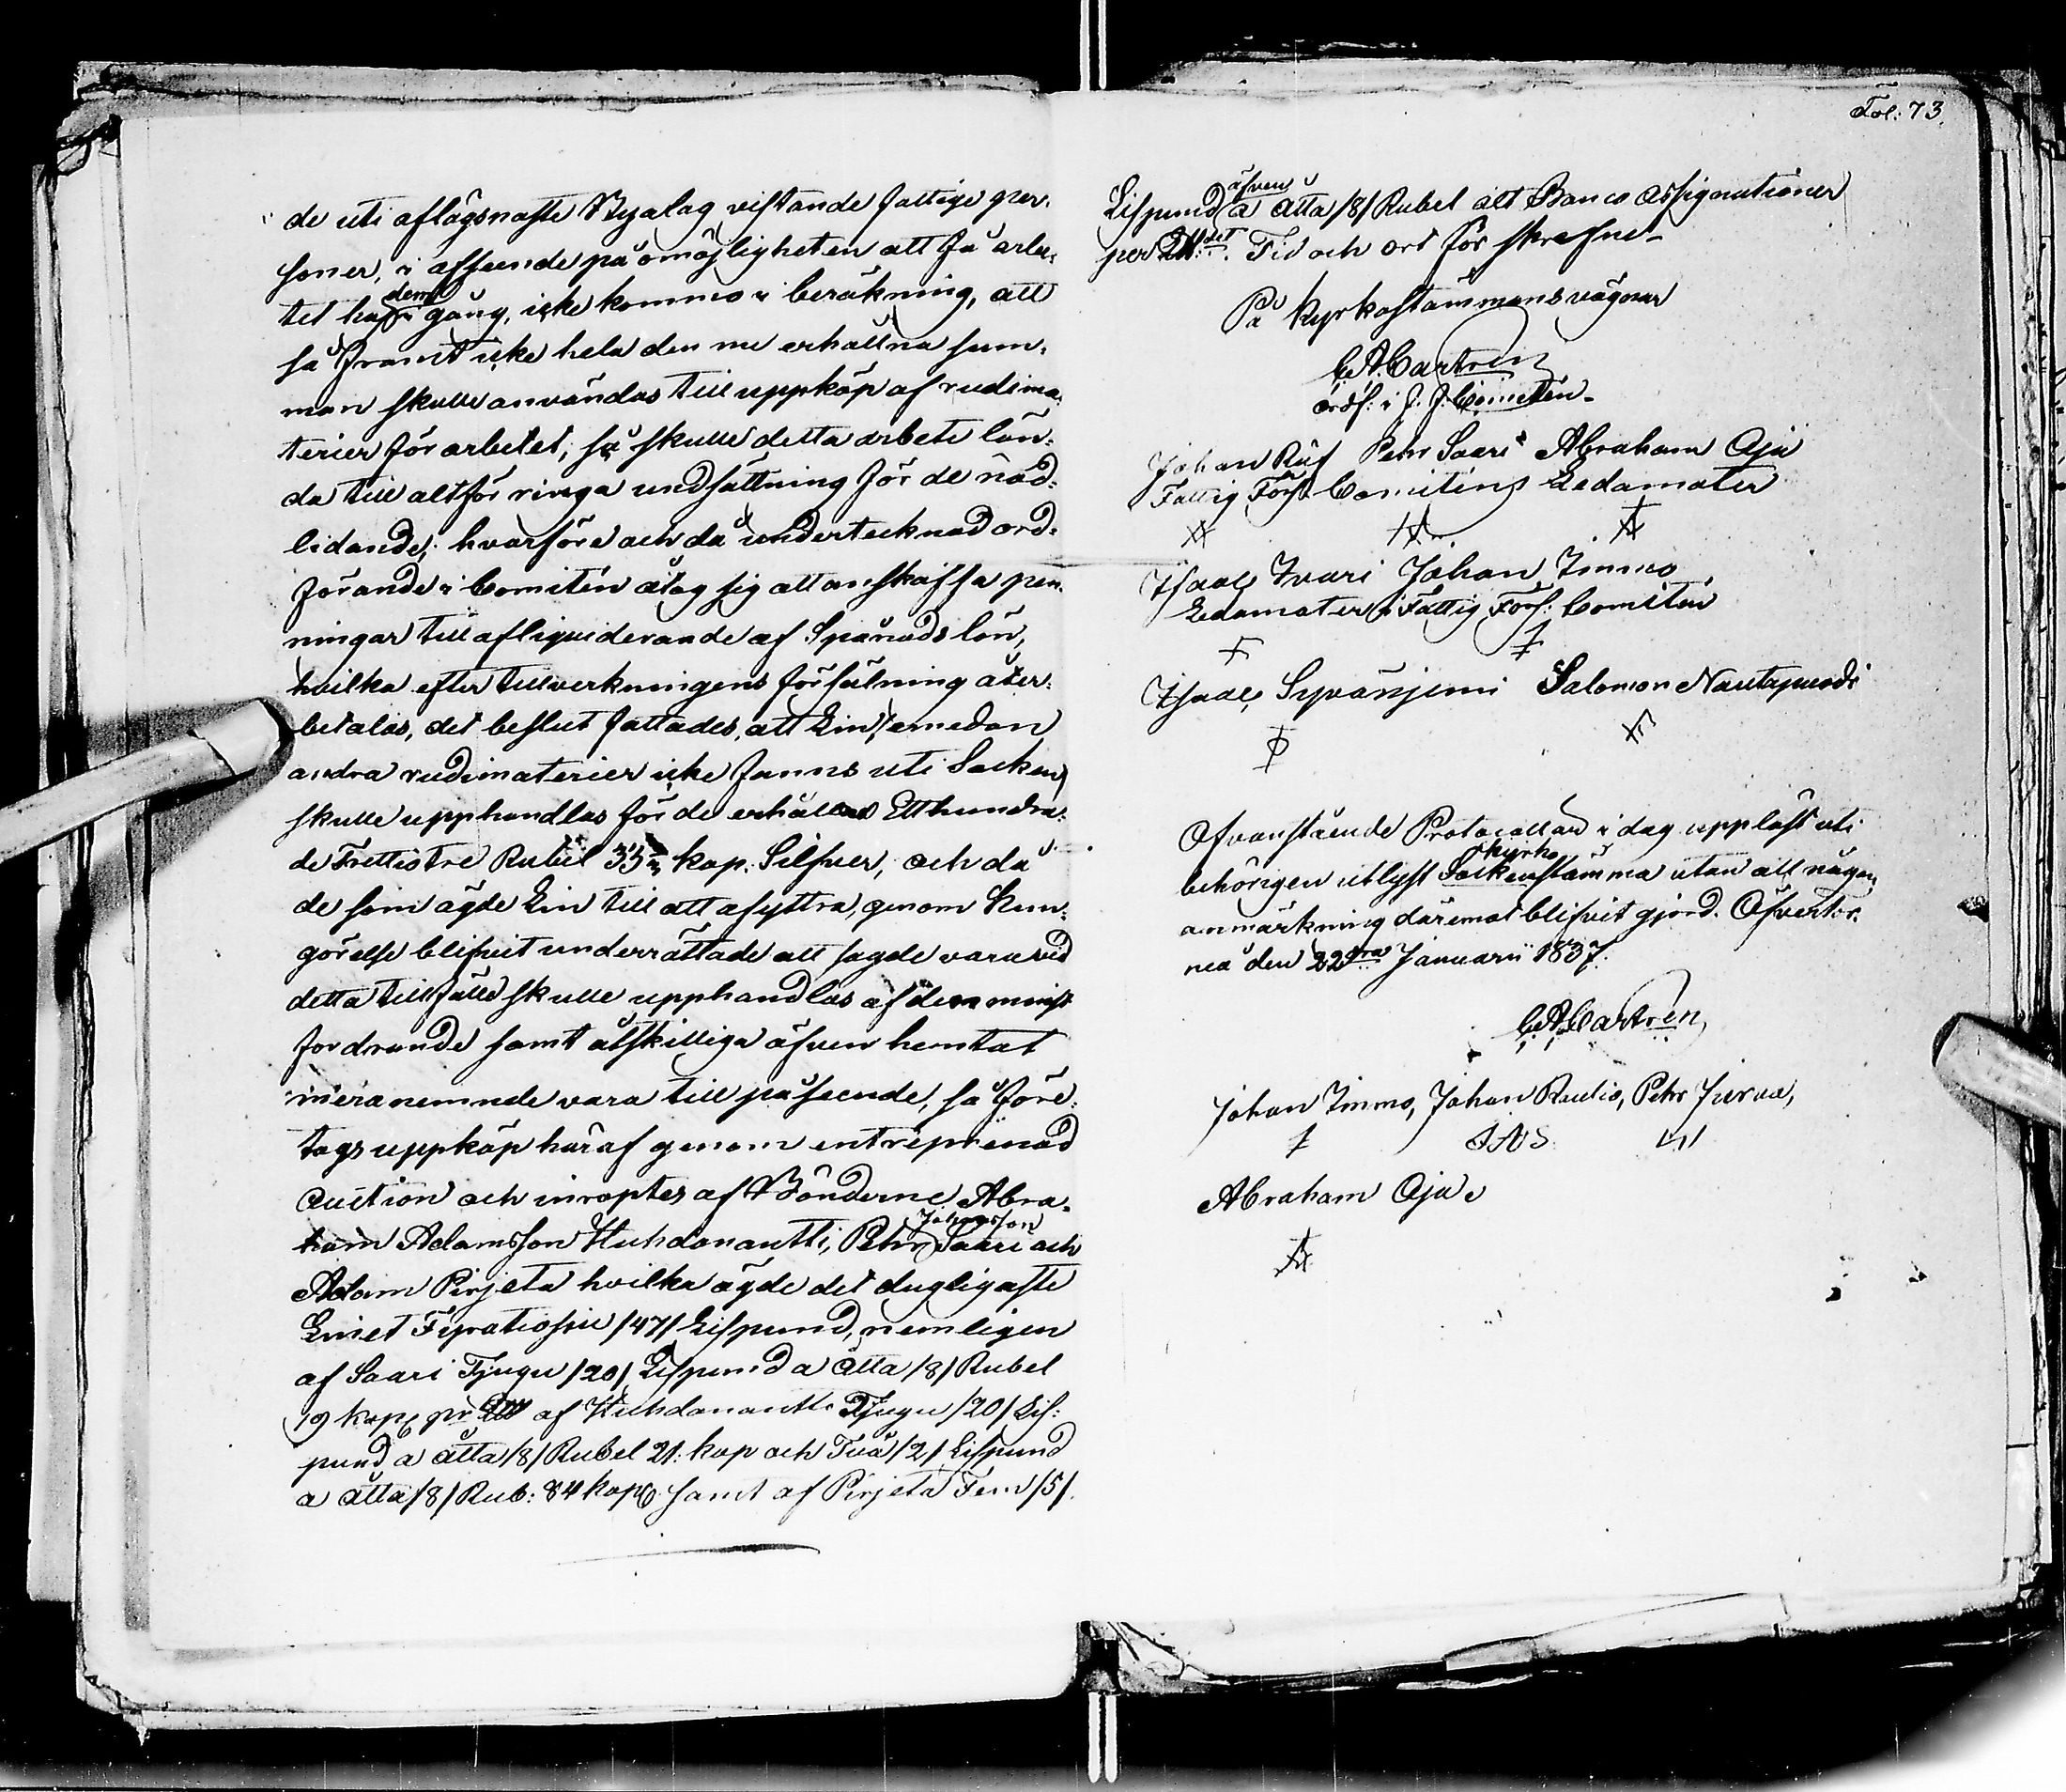 de uti aflägsnaste Byalag vistande fattige per-
soner, i afseende på omöjligheten att få arbe-
tet hos dem i gång, icke komma i beräkning, att
så framt icke hela den nu erhållna sum-
man skulle användas till uppköp af rudima-
terier för arbetet, så skulle detta arbete län-
da till altför ringa undsättning för de nöd-
lidande; hvarföre och då undertecknad ord-
förande i Comitén åtog sig att anskaffa pen-
ningar till afliquiderande af Spånads lön,
hvilka efter tillverkningens försälning åter-
betalas, det beslut fattades, att Lin, emedan
andra rudimaterier icke fanns uti Socken,
skulle upphandlas för de erhållna Etthundra-
de Trettiotre Rubel 33 1/3 kop. Silfver, och då
de som ägde Lin till att afyttra, genom Kun-
görelse blifvit underrättade att sagde vara vid
detta tillfälle skulle upphandlas af dem minst
fordrande samt åtskillige äfven hemtat
meranemnde vara till påseende, så före-
togs uppköp häraf genom entreprenad
Auction och inroptes af Bönderne Abra-
ham Adamsson Huhdanantti, Petr Johansson Saari och
Adam Pirjeta hvilka ägde det dugligaste
Linet Fyratiosju /47/ Lispund, nemligen
af Saari Tjugu /20/ Lispund a åtta /8/ Rubel
19 kop. pr af Huhdanantti Tjugu /20/ Lis-
pund a åtta /8/ Rubel 21. kop och Två /2/ Lispund
a åtta /8/ Rub: 84 kop. samt af Pirjeta Fem /5/
Fol: 73.
Lispund äfven a åtta /8/ Rubel allt Banco Assignationer
per Tid och ort för skrefne
På Kyrkostämmans vägnar
C. A. Castrén
ordf: i F. F. Comitén
Johan Ruf Petr Saari Abraham Oja
Fattig Förs. Comiténs Ledamöter
Isaac Ivari Johan Immo
Ledamöter i Fattig Förs: Comitén
Isaac Syvänjemi Salomon Nautapuodi
Ofvanstående Protocoll är i dag uppläst uti
behörigen utlyst Sockenstämma kyrko utan att någon
anmärkning däremot blifvit gjord. Öfvertor-
neå den 22dra Januarii 1837.
C. A. Castrén
Johan Immo, Johan Rautio, Petr Jurva,
I A S
Abraham Oja